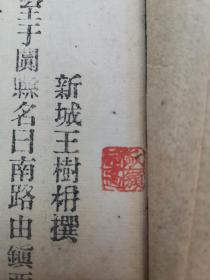 新城王樹枏撰
至于闐縣名曰南路由鎮西